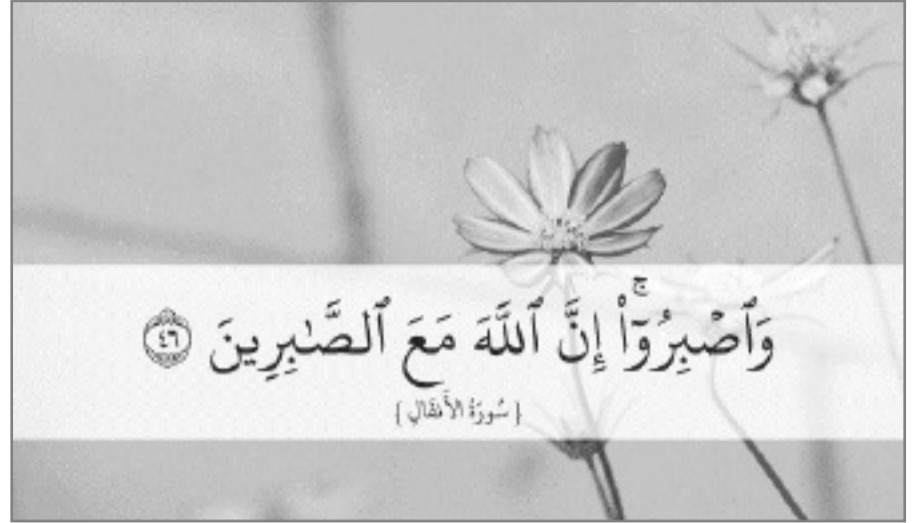 وَٱصْبِرُوٓا۟ ۚ إِنَّ ٱللَّهَ مَعَ ٱلصَّـٰبِرِينَ ٤٦
{ سُورَةُ الأَنفَالِ }